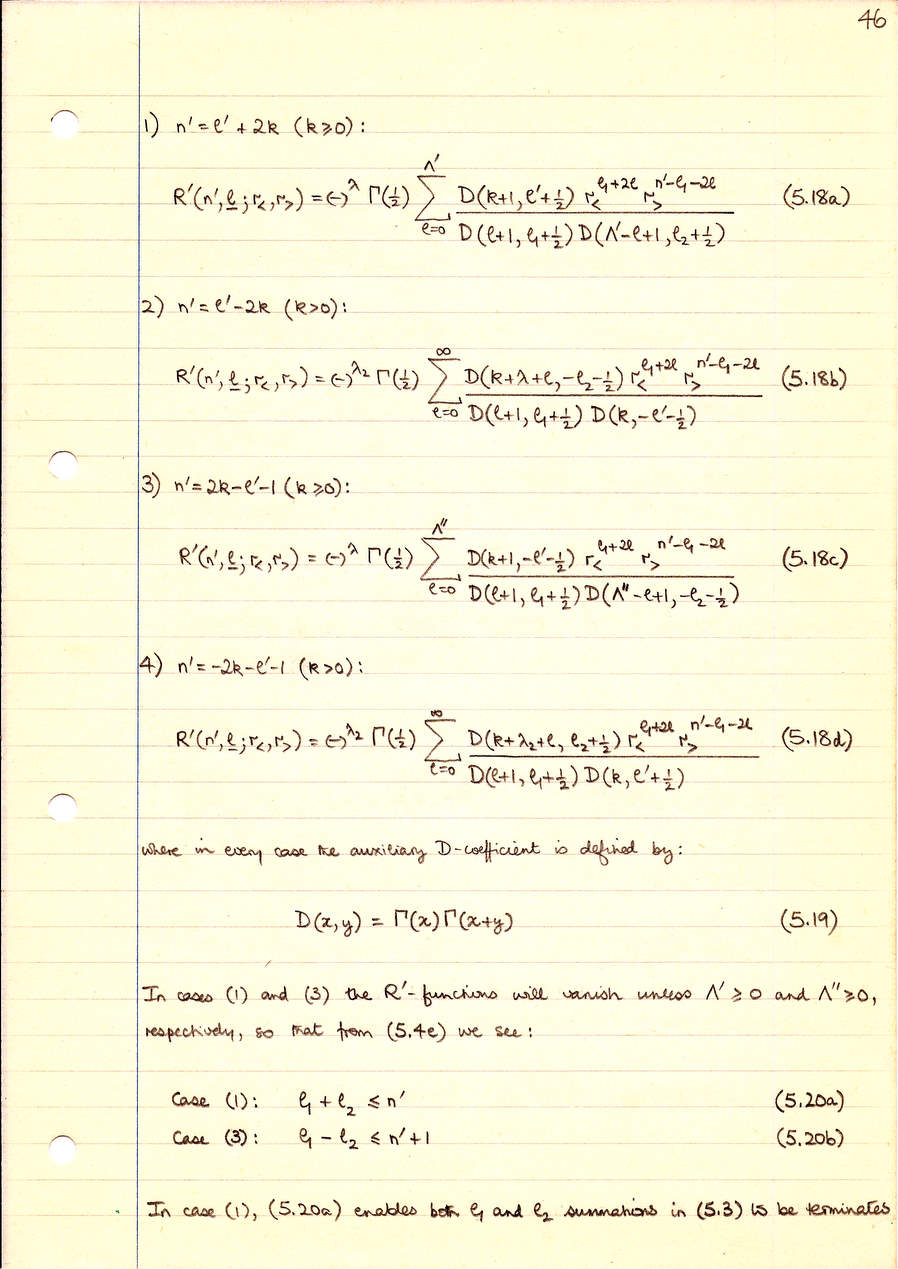 46
1) n' = ℓ' + 2k (k ≥ 0) :
R'(n', ℓ̲ ; r<, r>) = (−)^λ Γ(½) Σ_{ℓ=0}^{Λ'} D(k+1, ℓ'+½) r<^{ℓ₁+2ℓ} r>^{n'−ℓ₁−2ℓ} / D(ℓ+1, ℓ₁+½) D(Λ'−ℓ+1, ℓ₂+½) (5.18a)
2) n' = ℓ' − 2k (k > 0) :
R'(n', ℓ̲ ; r<, r>) = (−)^{λ₂} Γ(½) Σ_{ℓ=0}^{∞} D(k+λ+ℓ, −ℓ₂−½) r<^{ℓ₁+2ℓ} r>^{n'−ℓ₁−2ℓ} / D(ℓ+1, ℓ₁+½) D(k, −ℓ'−½) (5.18b)
3) n' = 2k − ℓ' − 1 (k ≥ 0) :
R'(n', ℓ̲ ; r<, r>) = (−)^λ Γ(½) Σ_{ℓ=0}^{Λ''} D(k+1, −ℓ'−½) r<^{ℓ₁+2ℓ} r>^{n'−ℓ₁−2ℓ} / D(ℓ+1, ℓ₁+½) D(Λ''−ℓ+1, −ℓ₂−½) (5.18c)
4) n' = −2k − ℓ' − 1 (k > 0) :
R'(n', ℓ̲ ; r<, r>) = (−)^{λ₂} Γ(½) Σ_{ℓ=0}^{∞} D(k+λ₂+ℓ, ℓ₂+½) r<^{ℓ₁+2ℓ} r>^{n'−ℓ₁−2ℓ} / D(ℓ+1, ℓ₁+½) D(k, ℓ'+½) (5.18d)
where in every case the auxiliary D-coefficient is defined by :
D(x,y) = Γ(x)Γ(x+y) (5.19)
In cases (1) and (3) the R'-functions will vanish unless Λ' ≥ 0 and Λ'' ≥ 0,
respectively, so that from (5.4e) we see :
Case (1): ℓ₁ + ℓ₂ ≤ n' (5.20a)
Case (3): ℓ₁ − ℓ₂ ≤ n' + 1 (5.20b)
In case (1), (5.20a) enables both ℓ₁ and ℓ₂ summations in (5.3) to be terminates